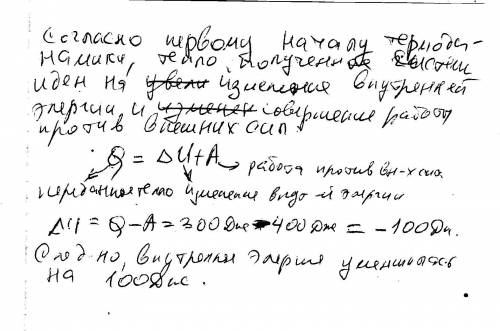 Согласно первому началу термоди-
намики, тепло, полученное
идет на изменение внутренней
энергии и совершение работы
против внешних сил.
Q = ΔU+A → работа против вн-х сил.
переданное тепло изменение внутр-й энергии
ΔU = Q - A = 300Дж - 400Дж = -100Дж.
След-но, внутрення энергия уменшилась
на 100Дж.